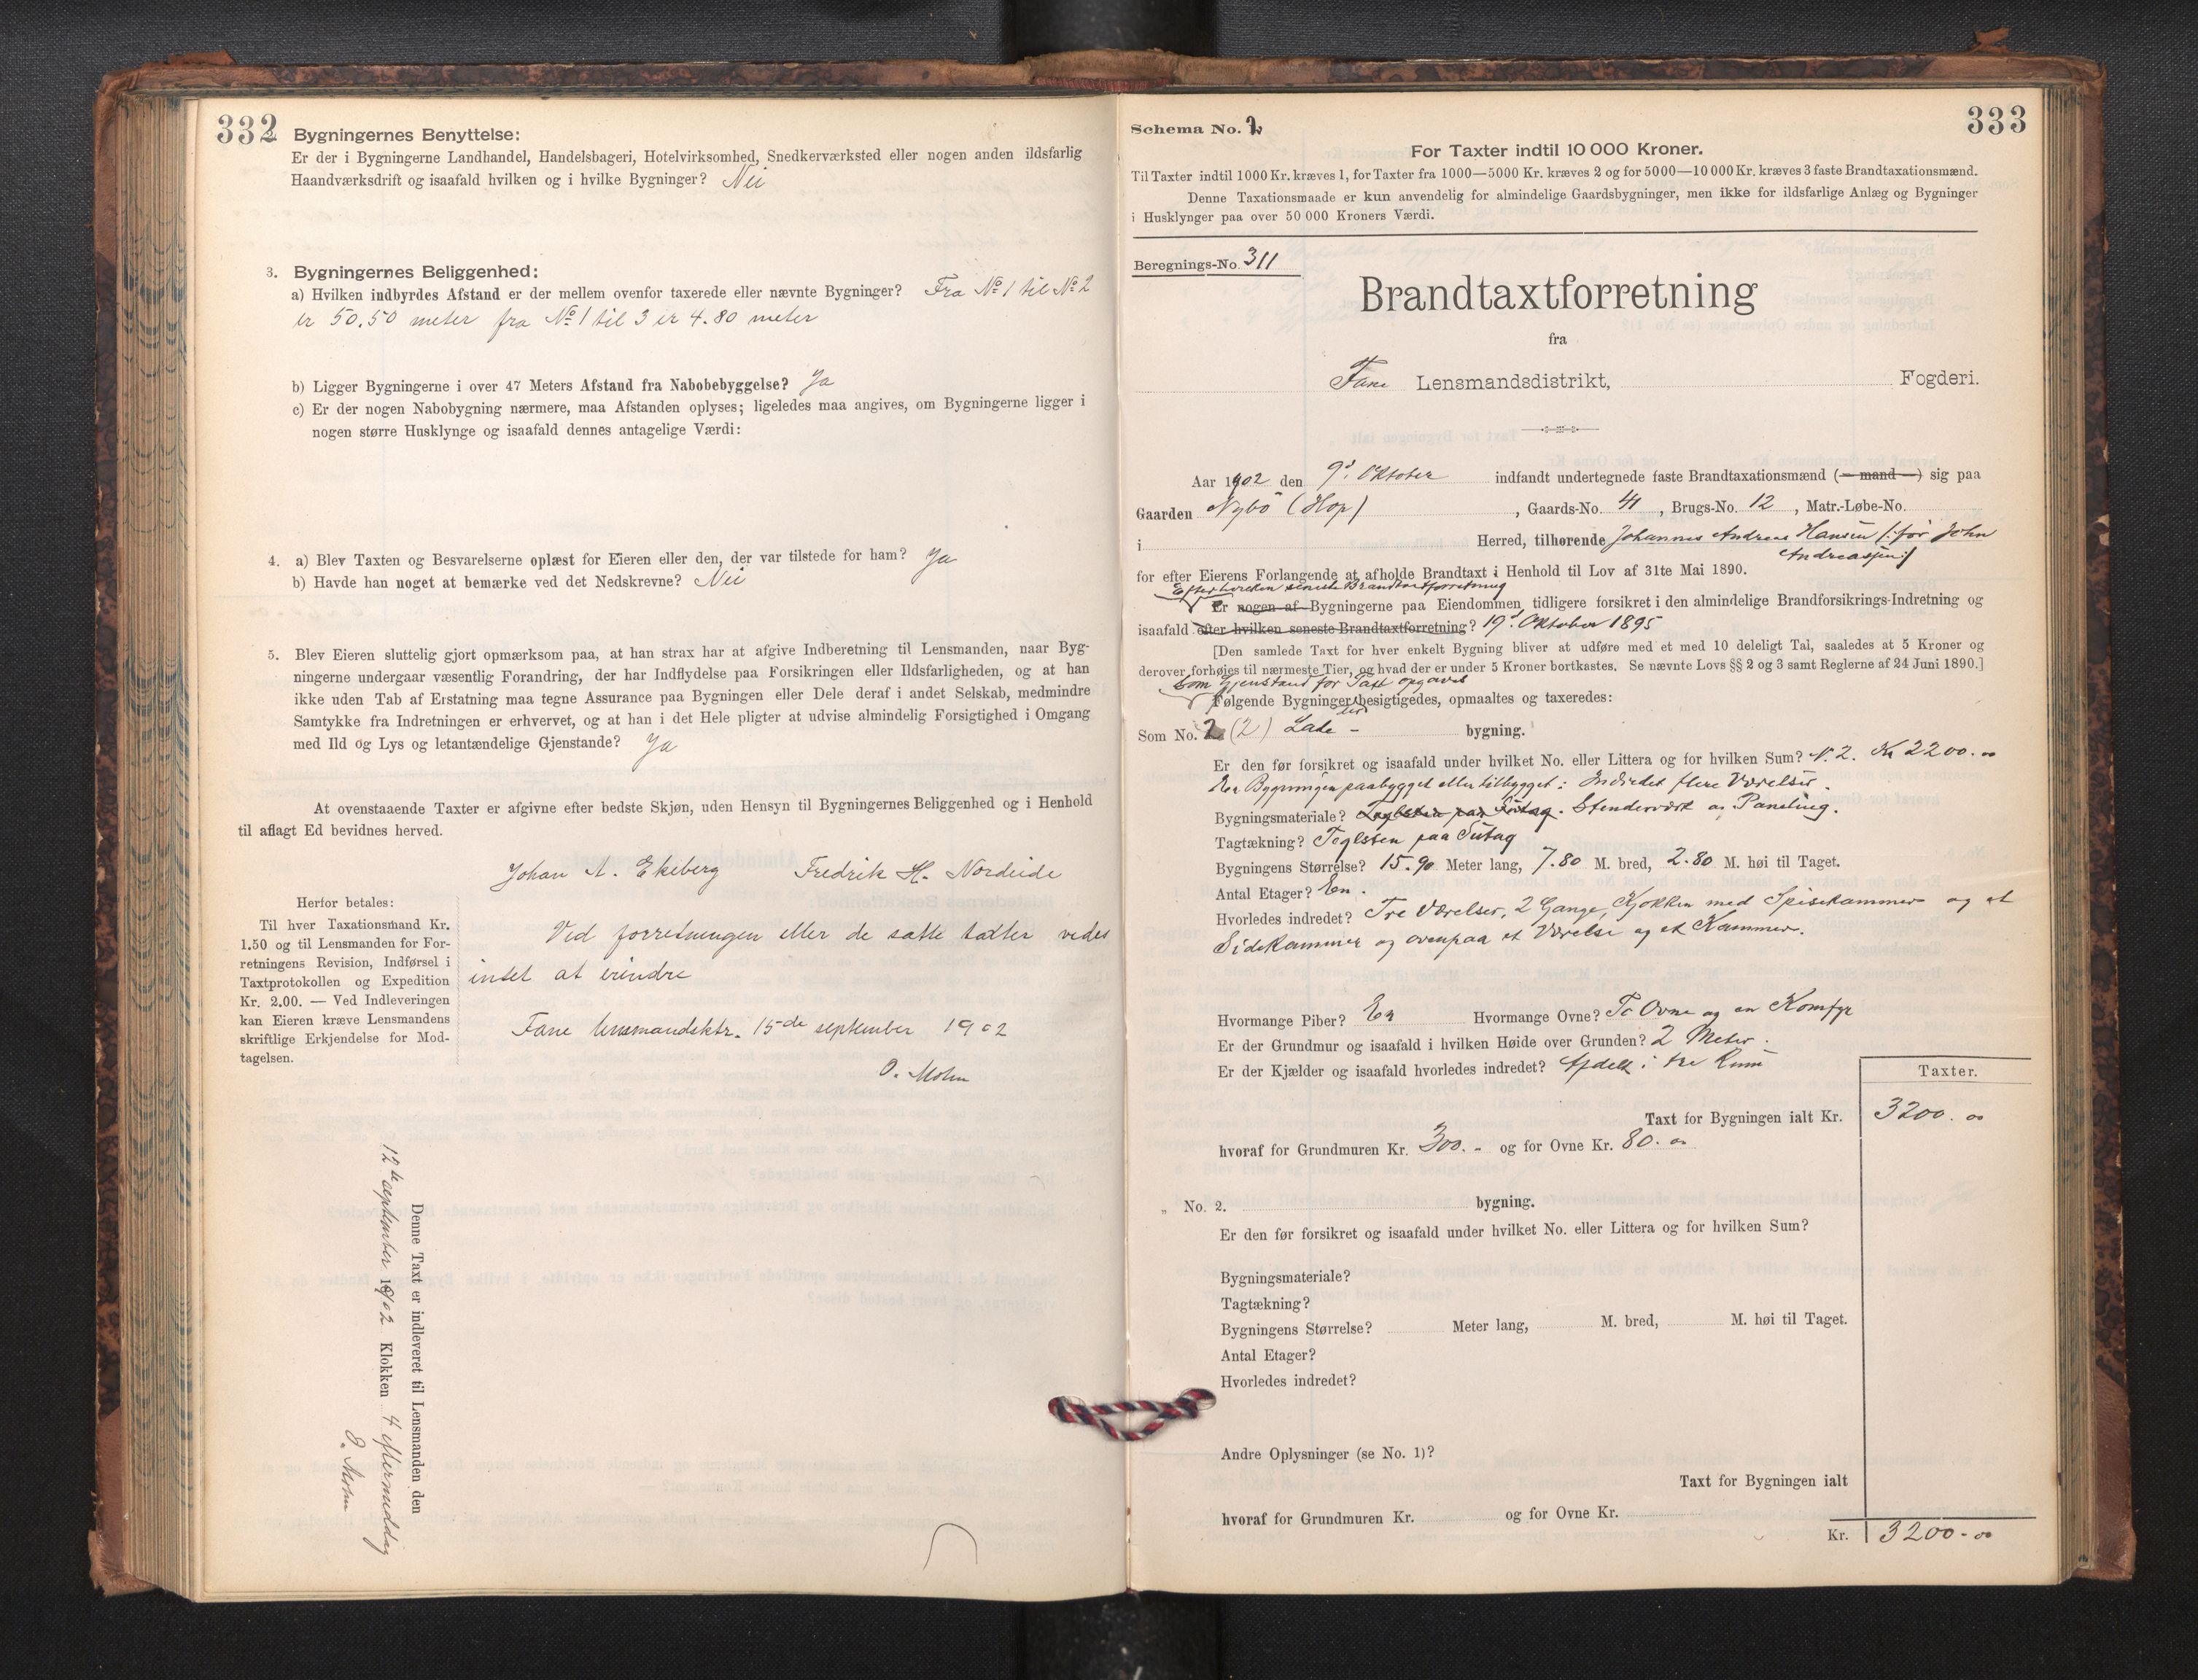 332
Bygningernes Benyttelse:
Er der i Bygningerne Landhandel, Handelsbageri, Hotelvirksomhed, Snedkerværksted eller nogen anden ildsfarlig
Haandværksdrift og isaafald hvilken og i hvilke Bygninger? Nei
3. Bygningernes Beliggenhed:
a) Hvilken indbyrdes Afstand er der mellem ovenfor taxerede eller nævnte Bygninger? Fra No 1 til No 2
er 50.50 meter fra No 1 til 3 er 4.80 meter
b) Ligger Bygningerne i over 47 Meters Afstand fra Nabobebyggelse? Ja
c) Er der nogen Nabobygning nærmere, maa Afstanden oplyses; ligeledes maa angives, om Bygningerne ligger i
nogen større Husklynge og isaafald dennes antagelige Værdi:
4. a) Blev Taxten og Besvarelserne oplæst for Eieren eller den, der var tilstede for ham? Ja
b) Havde han noget at bemærke ved det Nedskrevne? Nei
5. Blev Eieren sluttelig gjort opmærksom paa, at han strax har at afgive Indberetning til Lensmanden, naar Byg-
ningerne undergaar væsentlig Forandring, der har Indflydelse paa Forsikringen eller Ildsfarligheden, og at han
ikke uden Tab af Erstatning maa tegne Assurance paa Bygningen eller Dele deraf i andet Selskab, medmindre
Samtykke fra Indretningen er erhvervet, og at han i det Hele pligter at udvise almindelig Forsigtighed i Omgang
med Ild og Lys og letantændelige Gjenstande? Ja
At ovenstaaende Taxter er afgivne efter bedste Skjøn, uden Hensyn til Bygningernes Beliggenhed og i Henhold
til aflagt Ed bevidnes herved.
Johan A. Ekeberg Fredrik H. Nordeide
Herfor betales:
Til hver Taxationsmand Kr.
1.50 og til Lensmanden for For-
retningens Revision, Indførsel i
Taxtprotokollen og Expedition
Kr. 2.00. — Ved Indleveringen
kan Eieren kræve Lensmandens
skriftlige Erkjendelse for Mod-
tagelsen.
Ved forretningen eller de satte taxter vides
intet at erindre
Fane lensmandsktr. 15de september 1902
O. Mohn
Denne Taxt er indleveret til Lensmanden den
12te september 1902 Klokken 4 eftermiddag
O. Mohn
333
Schema No. 2
For Taxter indtil 10 000 Kroner.
Til Taxter indtil 1000 Kr. kræves 1, for Taxter fra 1000—5000 Kr. kræves 2 og for 5000—10 000 Kr. kræves 3 faste Brandtaxationsmænd.
Denne Taxationsmaade er kun anvendelig for almindelige Gaardsbygninger, men ikke for ildsfarlige Anlæg og Bygninger
i Husklynger paa over 50 000 Kroners Værdi.
Beregnings-No. 311
Brandtaxtforretning
fra
Fane Lensmandsdistrikt, Fogderi.
Aar 1902 den 9d Oktober indfandt undertegnede faste Brandtaxationsmænd (— mand —) sig paa
Gaarden Nybö (Hop) , Gaards-No. 41 , Brugs-No. 12 , Matr.-Løbe-No.
i Herred, tilhørende Johannes Andreas Hansen /: før John
Andreassen :/
for efter Eierens Forlangende at afholde Brandtaxt i Henhold til Lov af 31te Mai 1890.
Efter hvilken seneste Brandtaxtforretning
Er nogen af Bygningerne paa Eiendommen tidligere forsikret i den almindelige Brandforsikrings-Indretning og
isaafald efter hvilken seneste Brandtaxtforretning? 19d Oktober 1895
[Den samlede Taxt for hver enkelt Bygning bliver at udføre med et med 10 deleligt Tal, saaledes at 5 Kroner og
derover forhøjes til nærmeste Tier, og hvad der er under 5 Kroner bortkastes. Se nævnte Lovs §§ 2 og 3 samt Reglerne af 24 Juni 1890.]
Som Gjenstand for Taxt opgaves
Følgende Bygninger besigtigedes, opmaaltes og taxeredes:
Som No. 2 (2) Lade - bygning.
Er den før forsikret og isaafald under hvilket No. eller Littera og for hvilken Sum? N. 2. Kr 2200.00
Er Bygningen paabygget eller tilbygget: Indredet flere Værelser.
Bygningsmateriale? Stenderværk og Paneling.
Tagtækning? Teglsten paa Sutag
Bygningens Størrelse? 15.90 Meter lang, 7.80 M. bred, 2.80 M. høi til Taget.
Antal Etager? En.
Hvorledes indredet? Tre Værelser, 2 Gange, Kjøkken med Spisekammer og et
Sidekammer og ovenpaa et Værelse og et Kammer.
Hvormange Piber? En Hvormange Ovne? To Ovne og en Komfyr
Er der Grundmur og isaafald i hvilken Høide over Grunden? 2 Meter.
Er der Kjælder og isaafald hvorledes indredet? Afdelt i tre Rum
Taxter.
Taxt for Bygningen ialt Kr. 3200.00
hvoraf for Grundmuren Kr. 300.- og for Ovne Kr. 80.00
„ No. 2. bygning.
Er den før forsikret og isaafald under hvilket No. eller Littera og for hvilken Sum?
Bygningsmateriale?
Tagtækning?
Bygningens Størrelse? Meter lang, M. bred, M. høi til Taget.
Antal Etager?
Hvorledes indredet?
Andre Oplysninger (se No. 1)?
Taxt for Bygningen ialt
hvoraf for Grundmuren Kr. og for Ovne Kr.
Kr. 3200.00